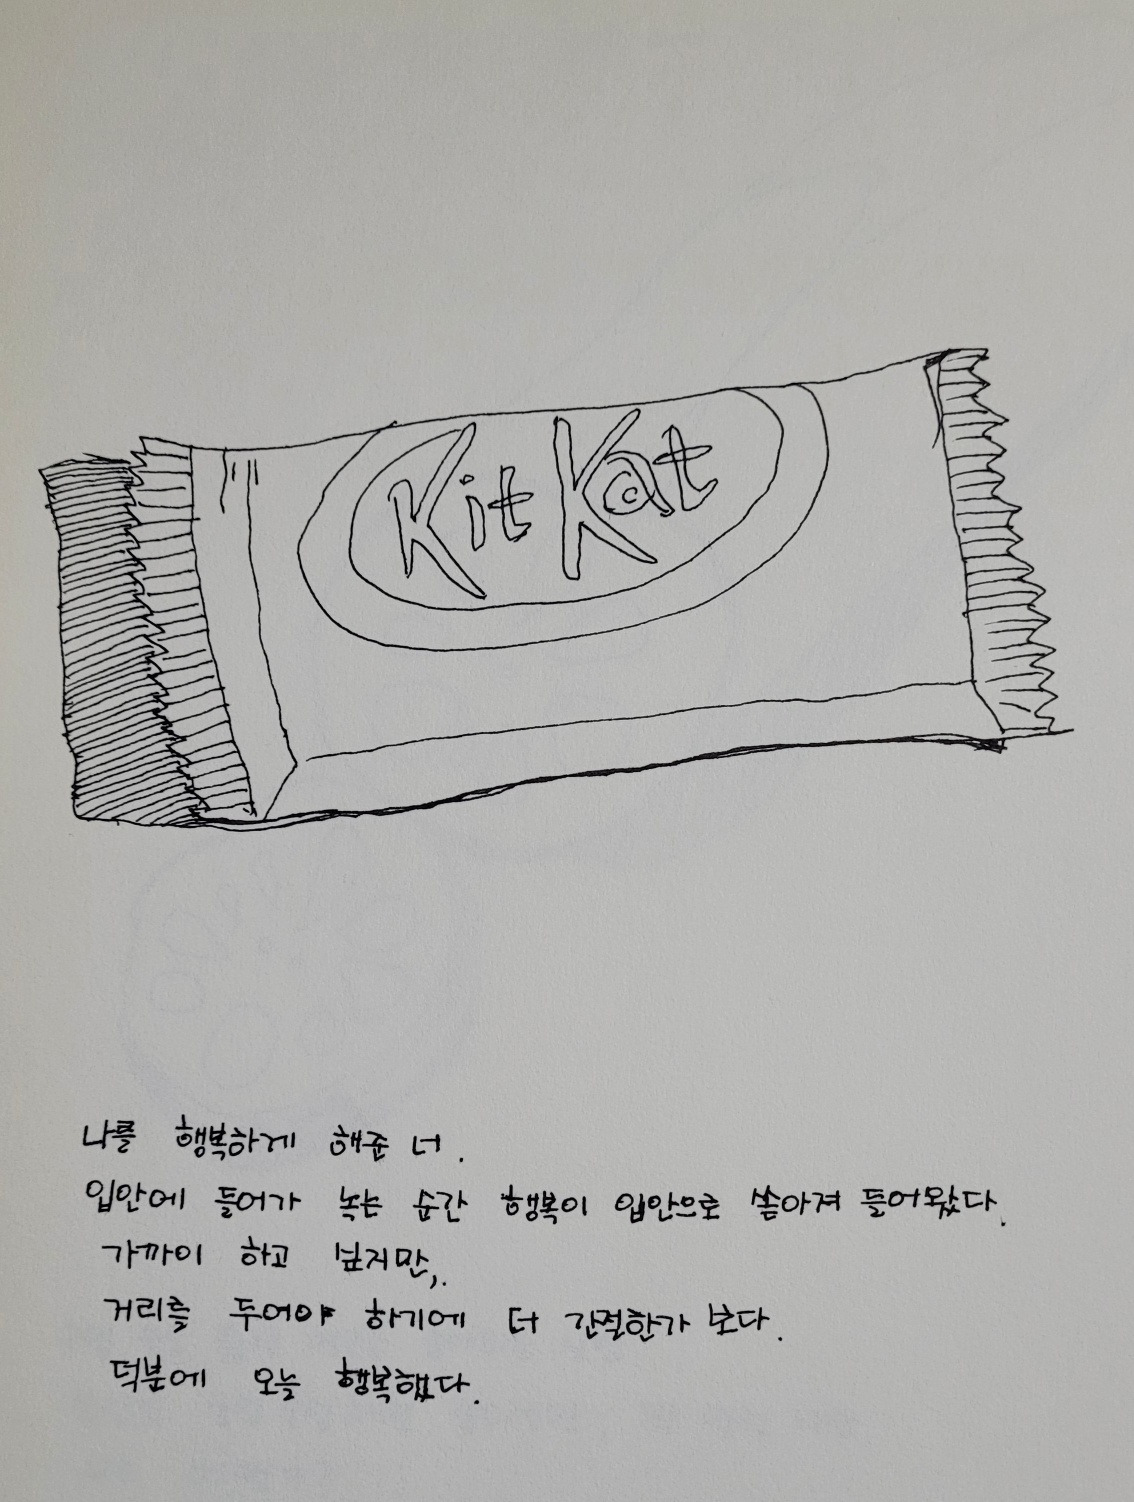 Kit Kat
나를 행복하게 해준 너.
입안에 들어가 녹는 순간 행복이 입안으로 쏟아져 들어왔다.
가까이 하고 싶지만,.
거리를 두어야 하기에 더 간절한가 보다.
덕분에 오늘 행복했다.